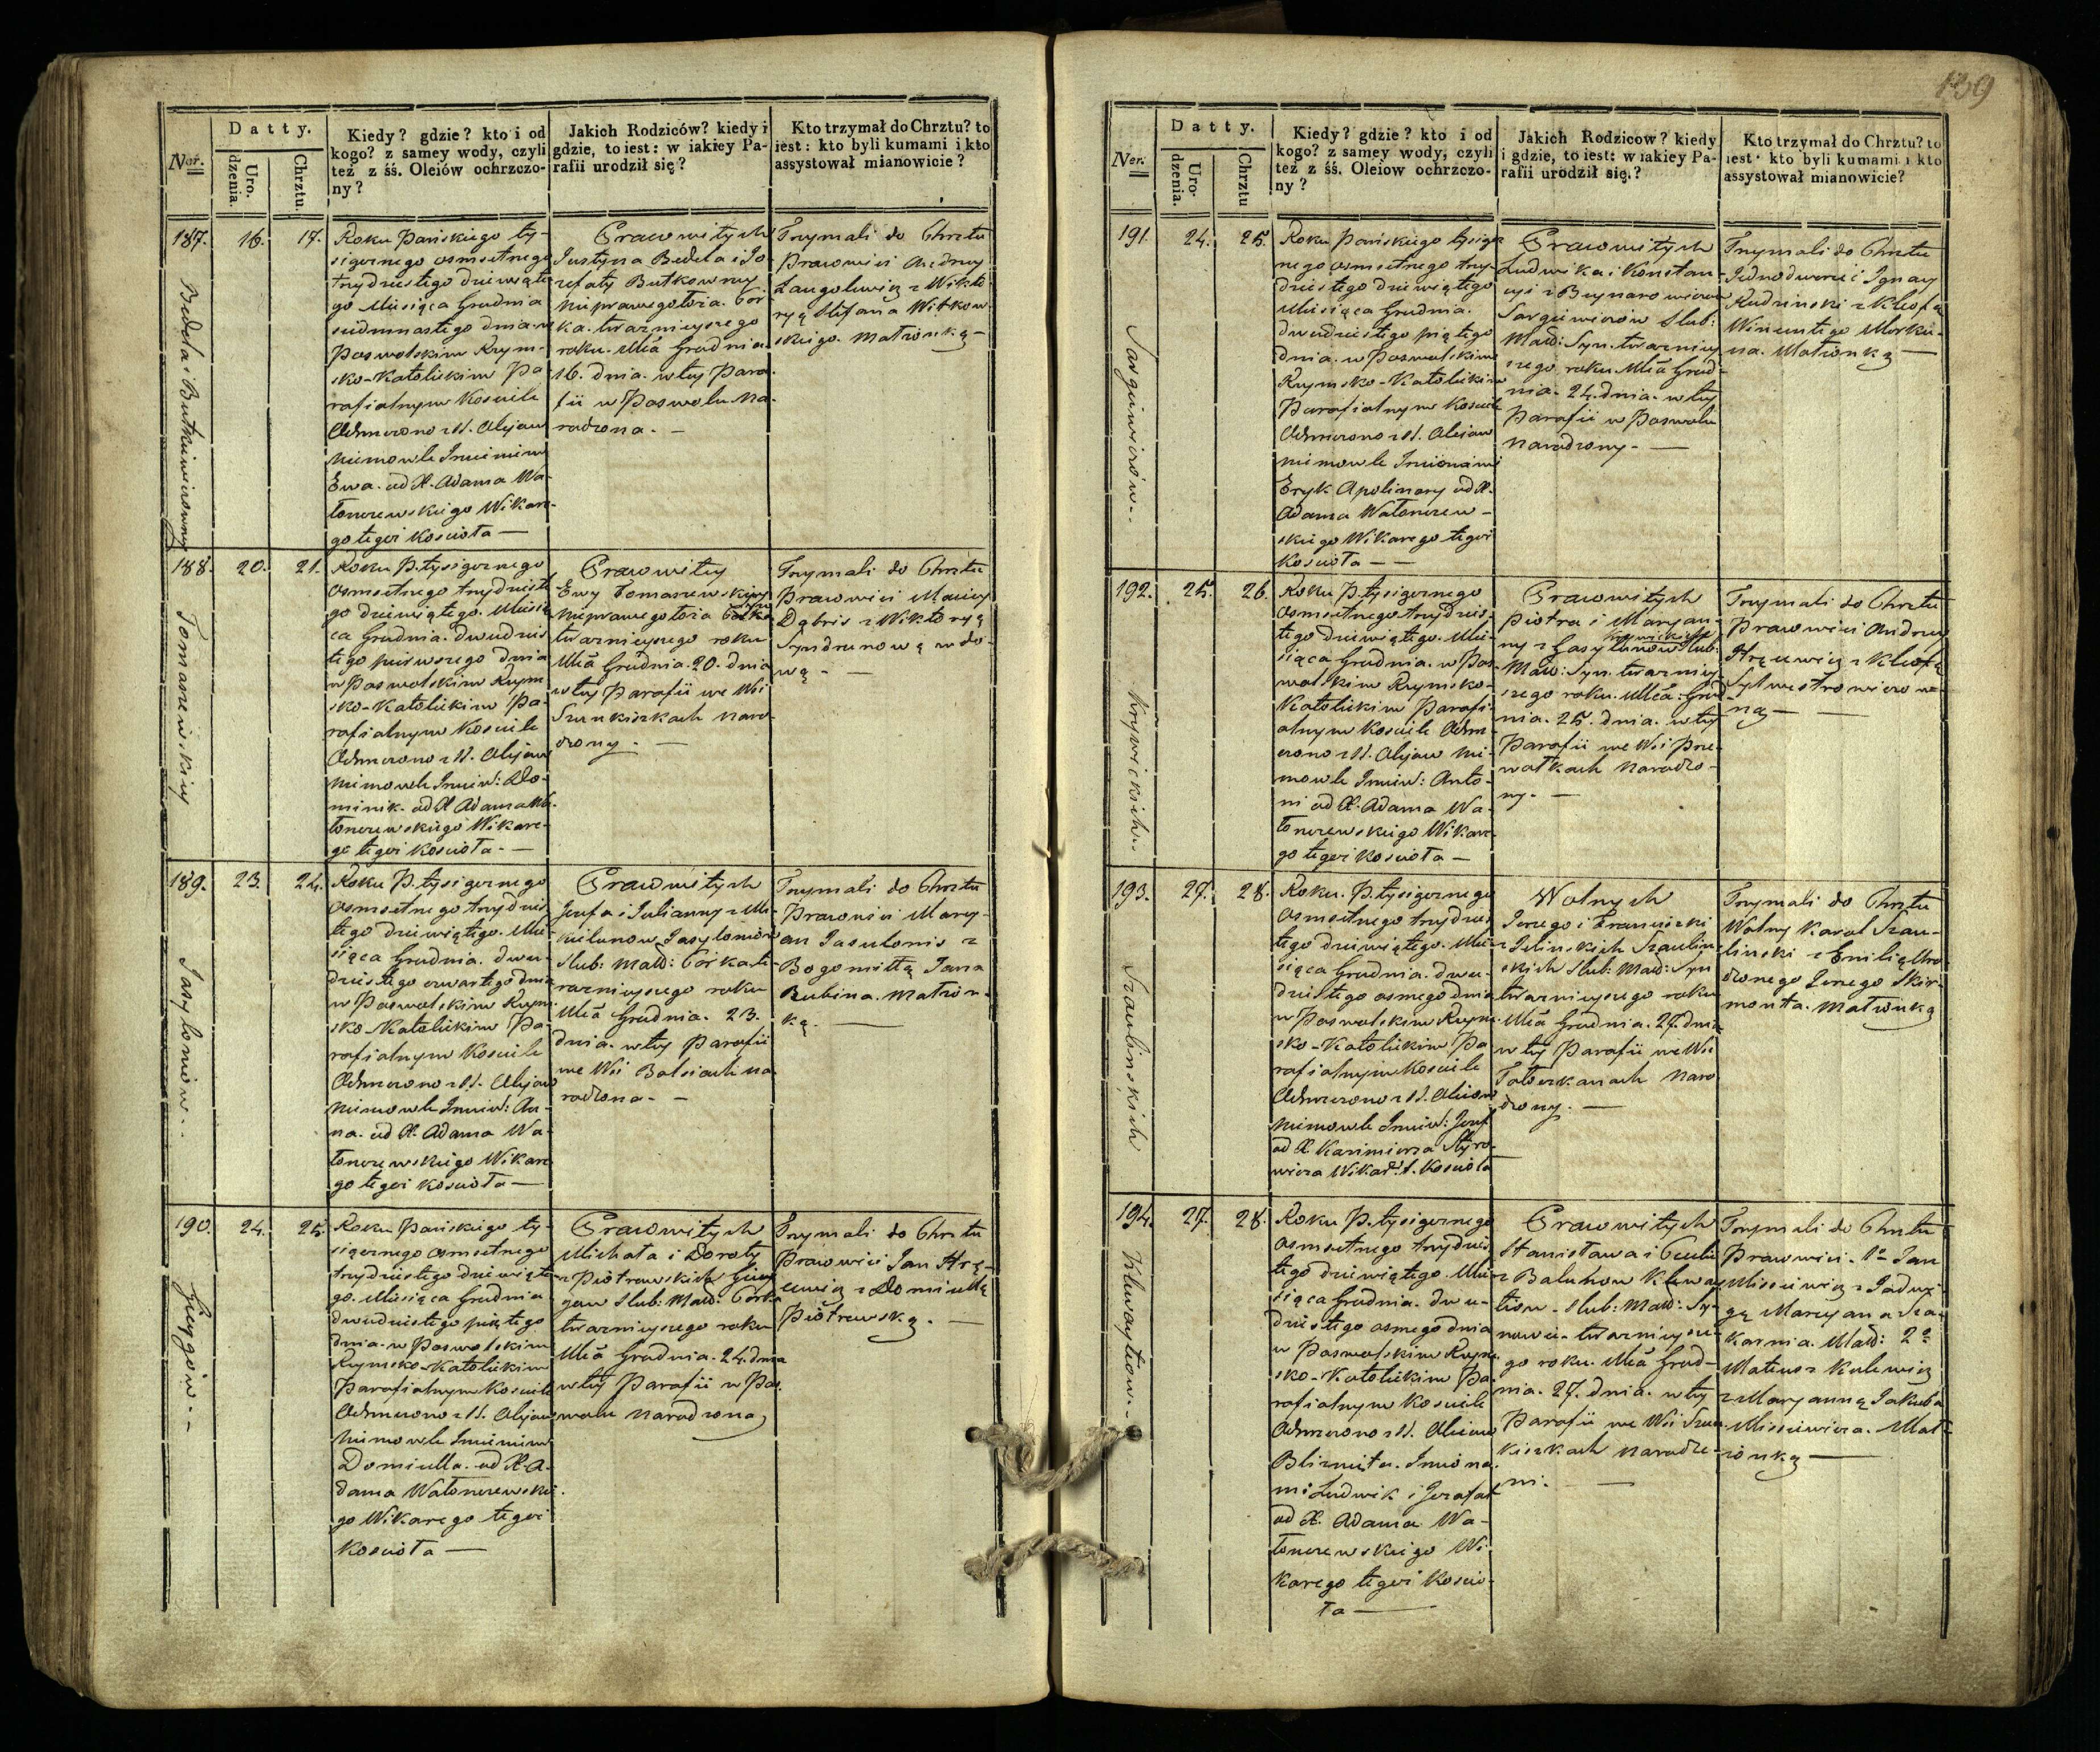 139
Datty.
Kiedy? gdzie? kto i od
kogo? z samey wody, czyli
też z śś. Oleiów ochrzczo-
ny?
Jakich Rodziców? kiedy i
gdzie, to iest: w iakiey Pa-
rafii urodził się?
Kto trzymał do Chrztu? to
iest: kto byli kumami i kto
assystował mianowicie?
Ner.
Uro-
dzenia.
Chrztu.
187.
16.
17.
Roku Pańskiego ty-
siącznego osmsetnego
trzydziestego dziewiąte
go Miesiąca Grudnia
siedmnastego dnia w
Poswolskim Rzym-
sko-Katolickim Pa
rafialnym Kosciele
Ochrzczono z SS. Olejow
niemowle Imieniem
Ewa. od X. Adama Wa-
łonczewskiego Wikare-
go tegoż Kościoła —
Prawowitych
Justyna Bedela i Jo-
zefaty Butkowny
nieprawego łoża. Cor
ka. terazniejszego
roku. Mca Grudnia
16. dnia. w tey Para-
fii w Poswolu na-
rodzona. —
Trzymali do Chrztu
Prawowici Andrzey
z Wikto
ryą Stefana Witkow-
skiego. Małżonką —
188.
20.
21.
Tomaszewskiey
Roku P. tysiącznego
Osmsetnego trzydzieste
go dziewiątego. Miesią
ca Grudnia. dwudzies
tego pierwszego dnia
w Poswolskim Rzym
sko-Katolickim Pa-
rafialnym Kosciele
Ochrzczono z SS. Olejow
niemowle Imien: Do-
minik. od X Adama Wa-
łonczewskiego Wikare-
go tegoż Kościoła. —
Prawowitey
Ewy Tomaszewskiey
nieprawego łoża
terazniejszego roku
Mca Grudnia. 20. dnia
w tey Parafii we Wsi
Szunkiszkach naro-
dzony. —
Trzymali do Chrztu
Prawowici Maciey
Dąbris z Wiktoryą
Syndrunową wdo-
wą — —
189.
23.
24.
Jasylonów.
Roku P. tysiącznego
Osmsetnego trzydzies
tego dziewiątego. Mie-
siąca Grudnia. dwu-
dziestego czwartego dnia
w Poswolskim Rzym-
sko-Katolickim Pa-
rafialnym Kosciele
Ochrzczono z SS. Olejow
niemowle Imien: An-
na. od X. Adama Wa-
łonczewskiego Wikare
go tegoż Kościoła —
Prawowitych
Jozefa i Julianny z Mi-
kielunow Jasylonów
Slub: Małż: Córka te-
razniejszego roku
Mca Grudnia. 23.
dnia. w tey Parafii
we Wsi Balsiach na
rodzona. —
Trzymali do Chrztu
Prawowici Mary-
an Jasulonis z
Bogomiłłą Jana
Rubina. Małżon-
ką. —
190.
24.
25.
Roku Pańskiego ty-
siącznego Osmsetnego
trzydziestego dziewiąte
go. Miesiąca Grudnia
dwudziestego piątego
dnia. w Poswolskim
Rzymsko-Katolickim
Parafialnym Kosciele
Ochrzczono z SS. Olejow
niemowle Imieniem
Domicella. od X. A-
dama Wałonczewskie-
go Wikarego tegoż
Kościoła —
Prawowitych
Michała i Doroty
z Piotrowskich
Slub: Małż: Córka
terazniejszego roku
Mca Grudnia. 24. dnia
w tey Parafii w Pos-
wolu narodzona
Trzymali do Chrztu
Prawowici Jan
z Domicellą
Piotrowską. —
Datty.
Kiedy? gdzie? kto i od
kogo? z samey wody, czyli
też z śś. Oleiow ochrzczo-
ny?
Jakich Rodziców? kiedy
i gdzie, to iest: w iakiey Pa-
rafii urodził się.?
Kto trzymał do Chrztu? to
iest: kto byli kumami i kto
assystował mianowicie?
Ner.
Uro-
dzenia.
Chrztu
191.
24.
25.
Roku Pańskiego tysiącz
nego osmsetnego trzy-
dziestego dziewiątego
Miesiąca Grudnia.
dwudziestego piątego
dnia. w Poswolskim
Rzymsko-Katolickim
Parafialnym Kosciele
Ochrzczono z SS. Olejow
niemowle Imionami
Eryk Apolinary od X.
Adama Wałonczew-
skiego Wikarego tegoż
Kościoła — —
Prawowitych
Ludwika i Konstan-
cyi z
Slub:
Małż: Syn. terazniey
szego roku. Mca Grud-
nia. 24. dnia. w tey
Parafii w Poswolu
narodzony. —
Trzymali do Chrztu
Jednodworzec Ignacy
Rudzinski z Kleofą
Wincentego Morku-
na. Małżonką —
192.
25.
26.
Krzywickich.
Roku P. tysiącznego
Osmsetnego trzydzies-
tego dziewiątego. Mie-
siąca Grudnia. w Pos-
wolskim Rzymsko-
Katolickim Parafi-
alnym Kosciele Ochrz-
czono z SS. Olejow nie-
mowle Imien: Anto-
ni od X. Adama Wa-
łonczewskiego Wikare-
go tegoż Kościoła —
Prawowitych
Piotra i Maryan-
ny z Krzywickich Slub:
Małż: Syn. terazniey-
szego roku. Mca: Grud-
nia. 25. dnia. w tey
Parafii we Wsi Prze-
wałkach narodzo-
ny. —
Trzymali do Chrztu
Prawowici Andrzey
z Kleofą
Sylwestrowiczow-
ną — —
193.
27.
28.
Szaulinskich
Roku. P. tysiącznego
Osmsetnego trzydzies
tego dziewiątego. Mie-
siąca Grudnia. dwu-
dziestego osmego dnia
w Poswolskim Rzym-
sko-Katolickim Pa
rafialnym Kosciele
Ochrzczono z SS. Oleiow
niemowle Imien: Jozef
od X. Kazimierza Styro-
wicza Wikar: t. Kościoła
Wolnych
Jerzego i Franciszki
z Zelinskich Szaulin-
skich Slub: Małż: Syn
terazniejszego roku
Mca Grudnia. 27. dnia
w tey Parafii we Wsi
naro
dzony. —
Trzymali do Chrztu
Wolny Karol Szau-
linski z Emilią Uro-
dzonego Jerzego Skir-
monta. Małżonką
194.
27.
28.
Roku P. tysiącznego
Osmsetnego trzydzies
tego dziewiątego. Mie-
siąca Grudnia. dwu-
dziestego osmego dnia
w Poswolskim Rzym-
sko-Katolickim Pa-
rafialnym Kosciele
Ochrzczono z SS. Oleiow
Bliznięta. Imiona-
mi Ludwik i Jozafat
od X. Adama Wa-
łonczewskiego Wi-
karego tegoż Kościo-
ła —
Prawowitych
Stanisława i Cecylii
z Balunow
Slub: Małż: Sy-
nowie. terazniejsze-
go roku. Mca Grud-
nia. 27. dnia. w tey
Parafii we Wsi Szun-
kiszkach narodze-
ni. —
Trzymali do Chrztu
Prawowici. 1o Jan
Missiewicz z Jadwi-
gą Marcyana
Małż: 2o
Mateusz Kulewicz
z Maryanną Jakuba
Missiewicza. Małż-
żonką —